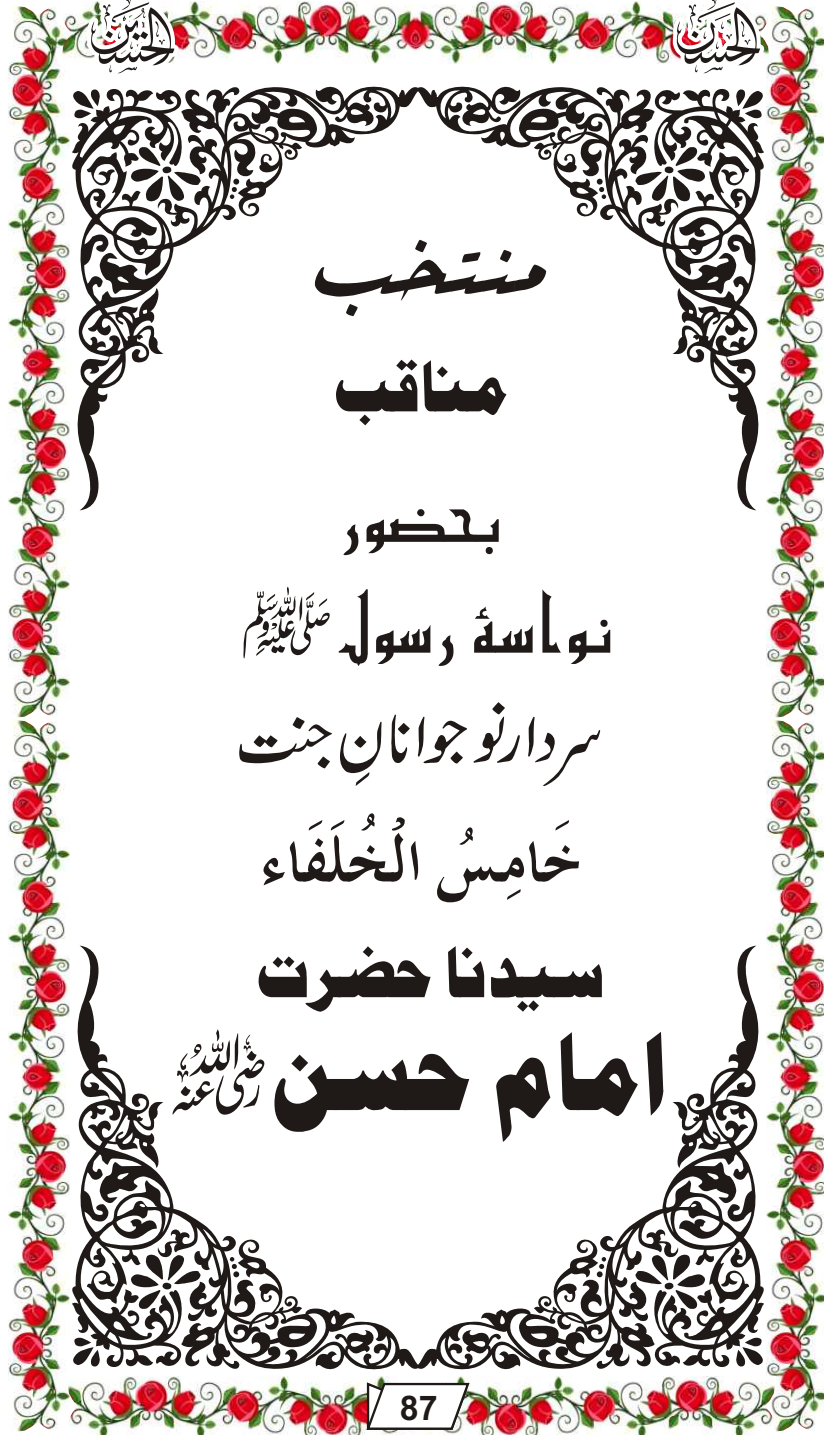 الحسین الحسن
منتخب
مناقب
بحضور
نواسۂ رسول ﷺ
سردار نوجوانانِ جنت
خَامِسُ الْخُلَفَاء
سیدنا حضرت
امام حسن رضی اللہ عنہ
87